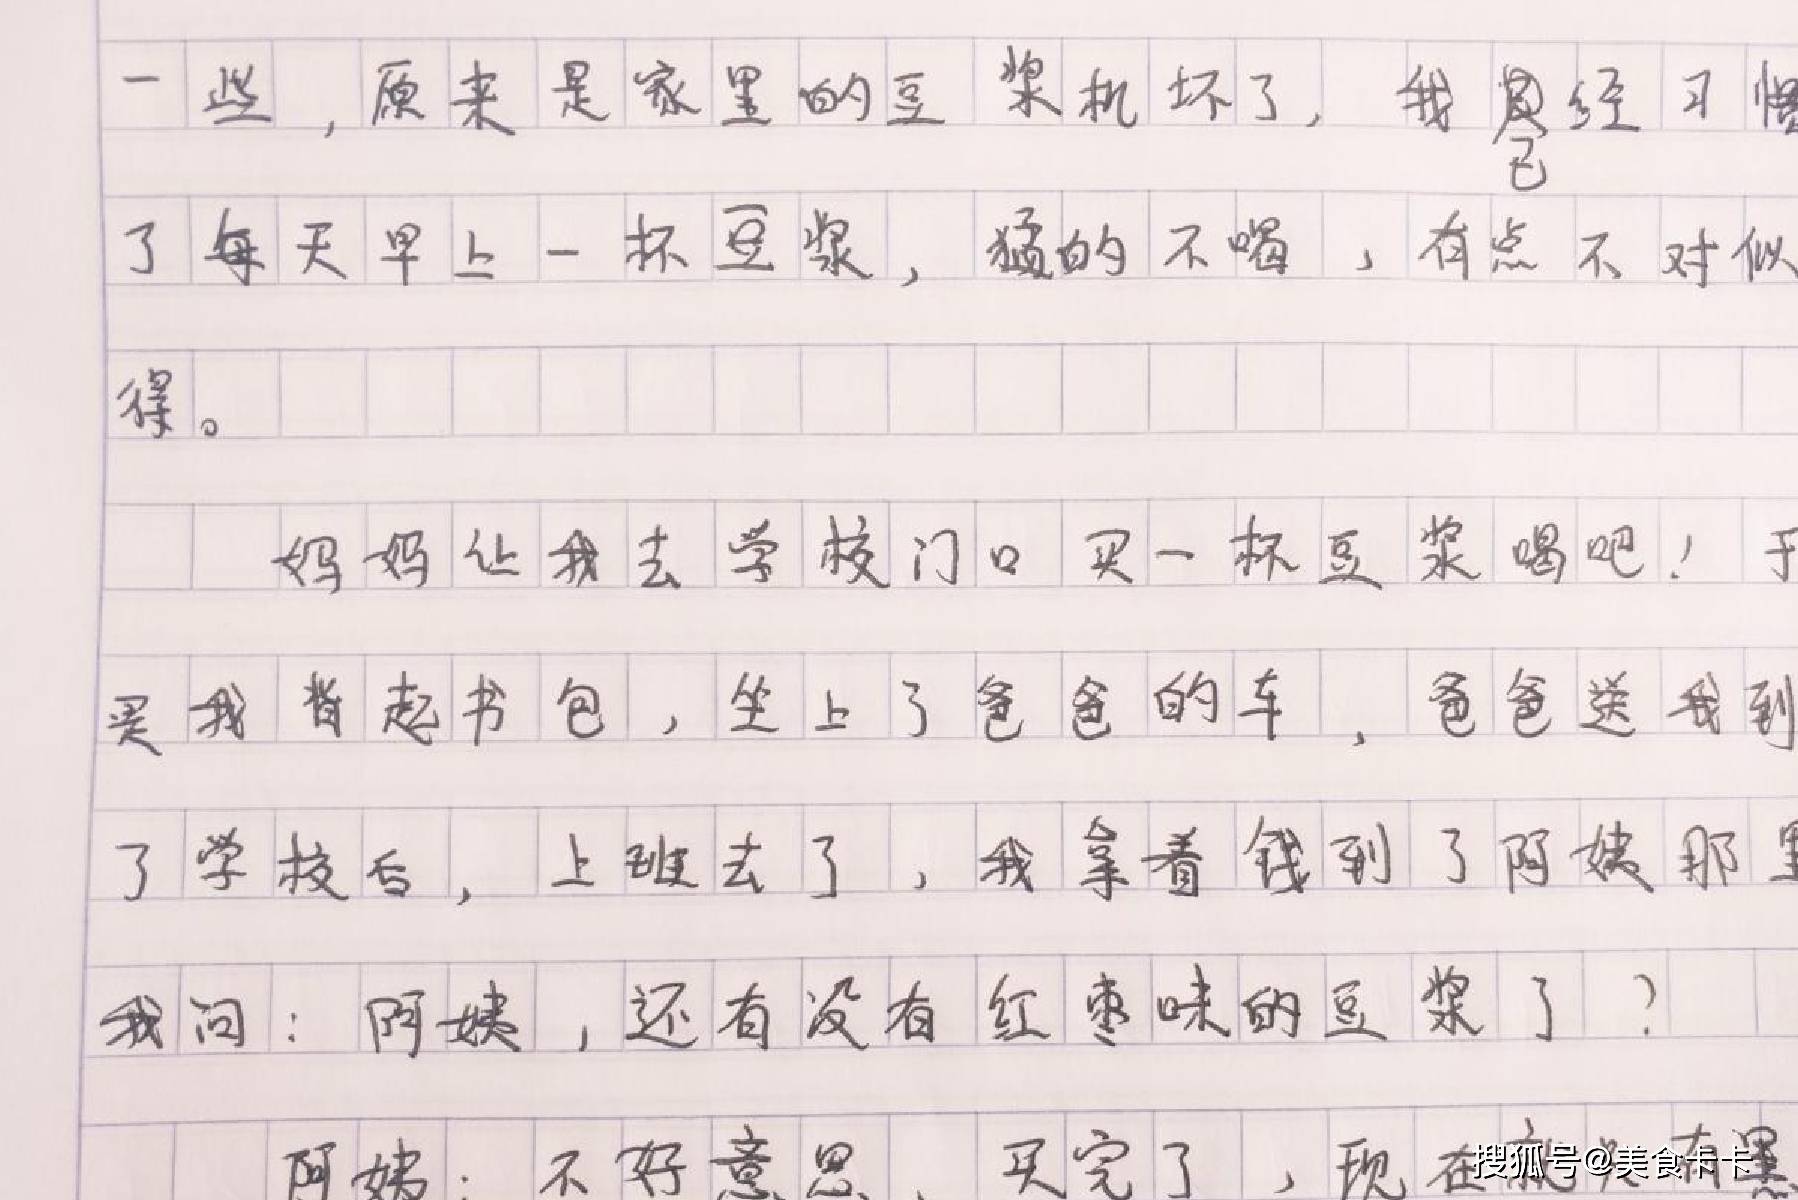 一些，原来是家里的豆浆机坏了，我已经习惯
了每天早上一杯豆浆，猛的不喝，有点不对似
得。
妈妈让我去学校门口买一杯豆浆喝吧！于
是我背起书包，坐上了爸爸的车，爸爸送我到
了学校后，上班去了，我拿着钱到了阿姨那里
我问：阿姨，还有没有红枣味的豆浆了？
阿姨：不好意思，买完了，现在有黑
搜狐号@美食卡卡